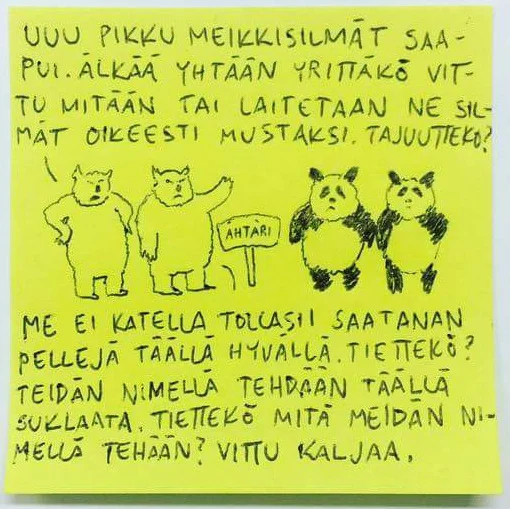 UUU PIKKU MEIKKISILMÄT SAA-
PUI. ÄLKÄÄ YHTÄÄN YRITTÄKÖ VIT-
TU MITÄÄN TAI LAITETAAN NE SIL-
MÄT OIKEESTI MUSTAKSI. TAJUUTTEKO?
ÄHTÄRI
ME EI KATELLA TOLLASII SAATANAN
PELLEJÄ TÄÄLLÄ HYVÄLLÄ. TIETTEKÖ?
TEIDÄN NIMELLÄ TEHDÄÄN TÄÄLLÄ
SUKLAATA. TIETTEKÖ MITÄ MEIDÄN NI-
MELLÄ TEHÄÄN? VITTU KALJAA.